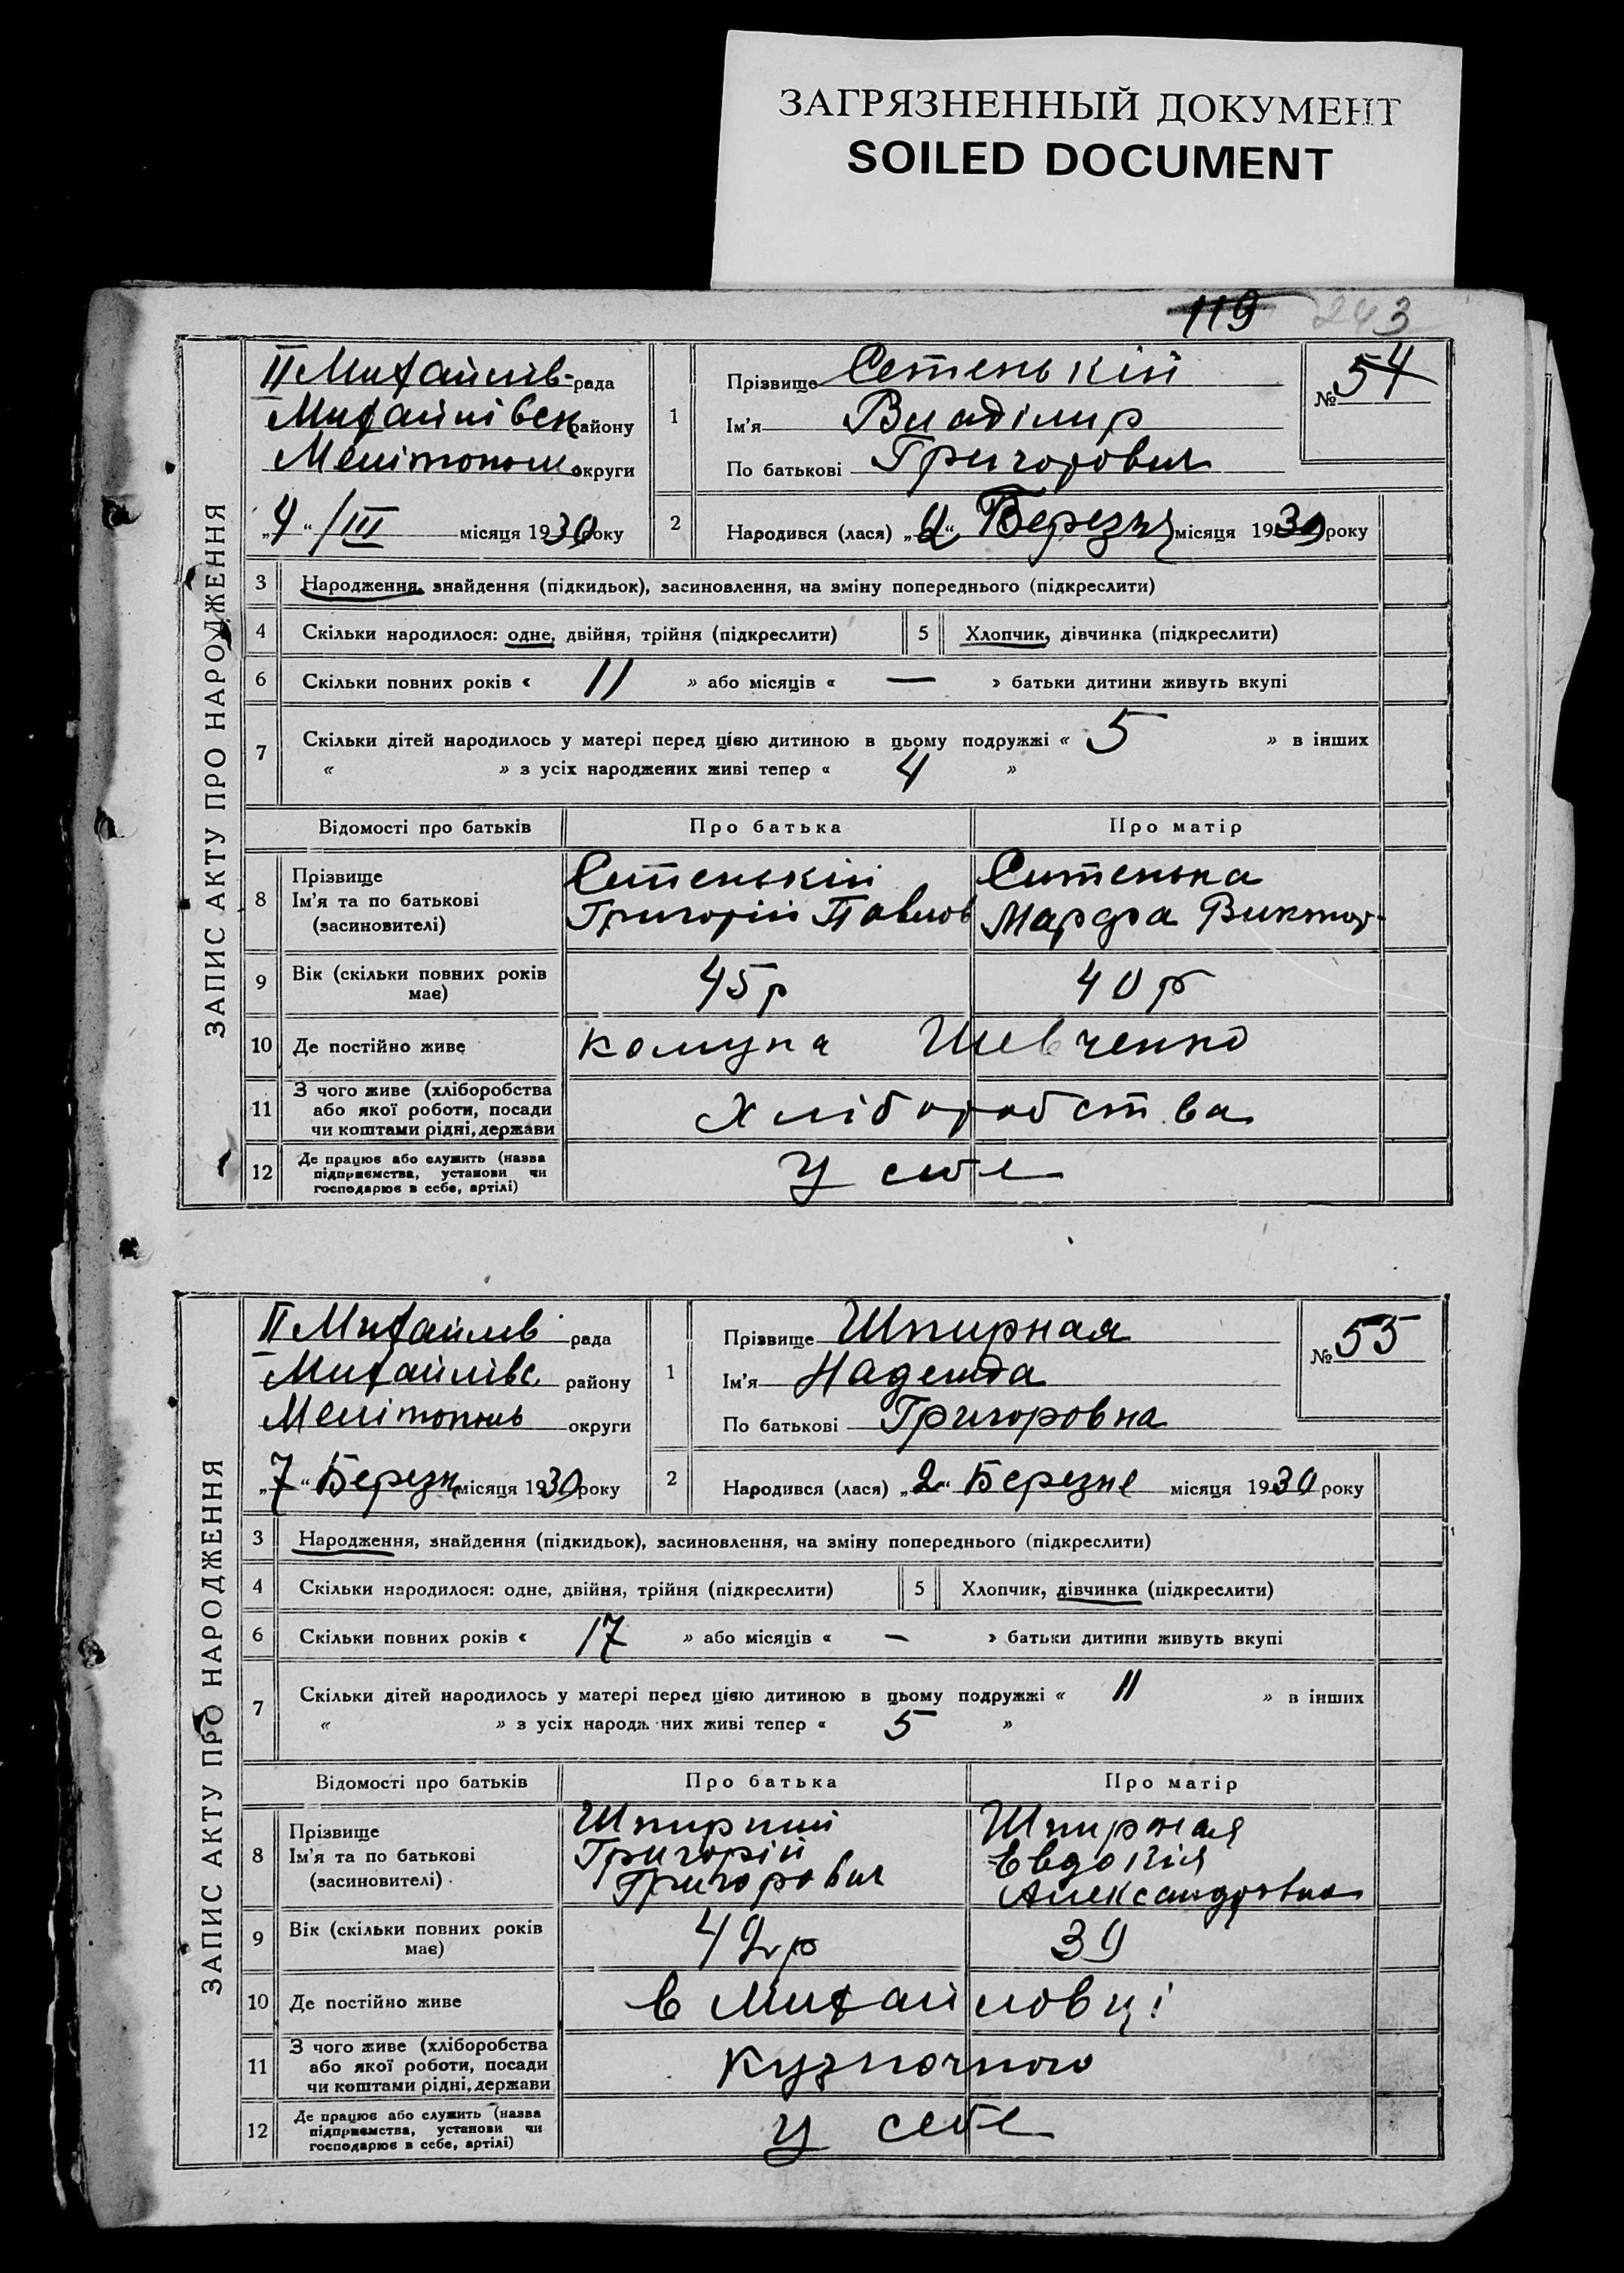 ЗАГРЯЗНЕННЫЙ ДОКУМЕНТ
SOILED DOCUMENT
119 243
ЗАПИС АКТУ ПРО НАРОДЖЕННЯ
II Михайлів- рада
Михайлівськ району
Мелітополь округи
„4“ /III місяця 1930 року
1 Прізвище Сетенькій
Ім'я Владімир
По батькові Григорович
№ 54
2 Народився (лася) „ “ Березня місяця 1930 року
3 Народження, знайдення (підкидьок), засиновлення, на зміну попереднього (підкреслити)
4 Скільки народилося: одне, двійня, трійня (підкреслити) 5 Хлопчик, дівчинка (підкреслити)
6 Скільки повних років « 11 » або місяців « — » батьки дитини живуть вкупі
7 Скільки дітей народилось у матері перед цією дитиною в цьому подружжі « 5 » в інших
« » з усіх народжених живі тепер « 4 »
Відомості про батьків Про батька Про матір
8 Прізвище
Ім'я та по батькові
(засиновителі)
Сетенькій
Григорій Павлов
Ситенька
Марфа Виктор-
9 Вік (скільки повних років має) 45 р 40 р
10 Де постійно живе комуна Шевченко
11 З чого живе (хліборобства
або якої роботи, посади
чи коштами рідні, держави
Хліборобства
12 Де працює або служить (назва
підприємства, установи чи
господарює в себе, артілі)
У себе
ЗАПИС АКТУ ПРО НАРОДЖЕННЯ
II Михайлів рада
Михайлівс. району
Мелітополь округи
„7“ Березн місяця 1930 року
1 Прізвище Шпирная
Ім'я Надежда
По батькові Григоровна
№ 55
2 Народився (лася) „2“ Березне місяця 1930 року
3 Народження, знайдення (підкидьок), засиновлення, на зміну попереднього (підкреслити)
4 Скільки народилося: одне, двійня, трійня (підкреслити) 5 Хлопчик, дівчинка (підкреслити)
6 Скільки повних років « 17 » або місяців « — » батьки дитини живуть вкупі
7 Скільки дітей народилось у матері перед цією дитиною в цьому подружжі « 11 » в інших
« » з усіх народж них живі тепер « 5 »
Відомості про батьків Про батька Про матір
8 Прізвище
Ім'я та по батькові
(засиновителі)
Шпирний
Григорій
Григорович
Шпирная
Евдокія
Александровна
9 Вік (скільки повних років має) 42 р 39
10 Де постійно живе в Михайловці
11 З чого живе (хліборобства
або якої роботи, посади
чи коштами рідні, держави
Кузночного
12 Де працює або служить (назва
підприємства, установи чи
господарює в себе, артілі)
У себе